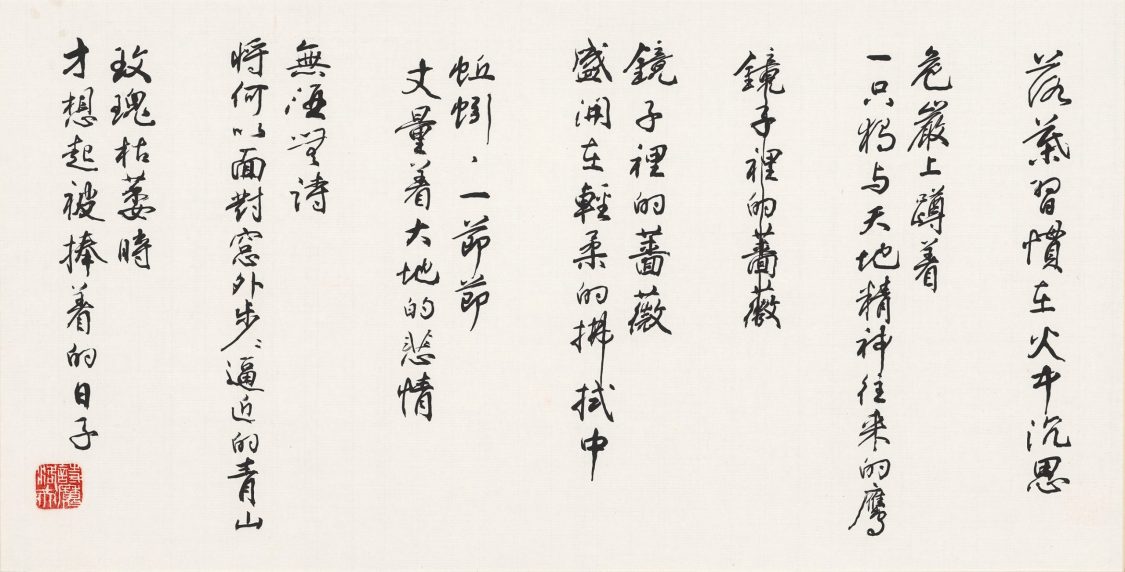 落葉習慣在火中沉思
危巖上蹲着
一只独与天地精神往来的鷹
鏡子裡的薔薇
鏡子裡的薔薇
盛開在輕柔的拂拭中
蚯蚓、一節節
丈量着大地的悲情
無酒無詩
將何以面對窗外步々逼近的青山
玫瑰枯萎時
才想起被捧着的日子
詩魔
洛夫